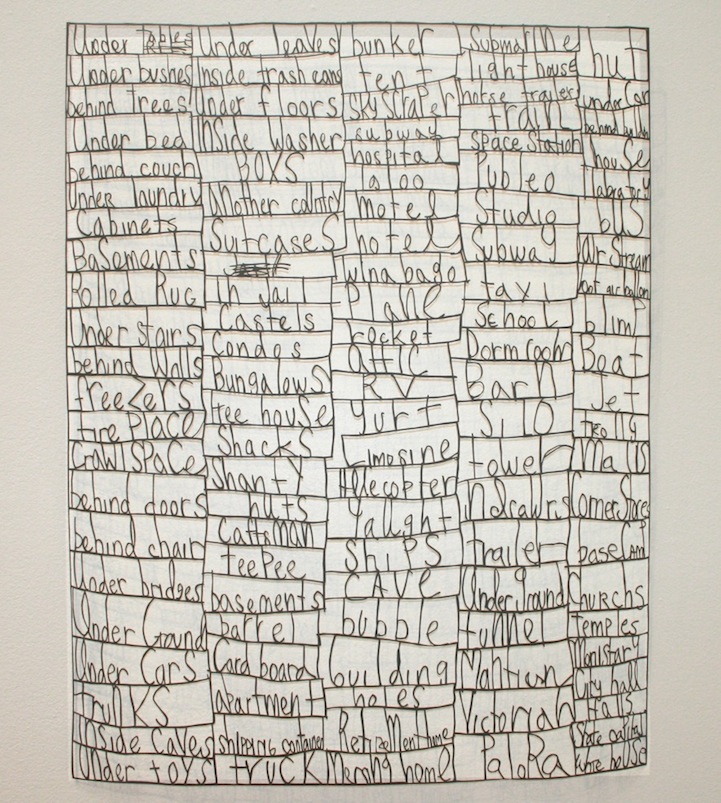 Under Tables
Under bushes
behind Trees
Under bed
behind couch
Under laundry
Cabinets
Basements
Rolled Rug
Under stairs
behind Walls
freezers
fire Place
Crawl SPace
behind doors
behind chair
Under bridges
Under Ground
Under Cars
Trunks
Inside Caves
Under toys
Under leaves
Inside trash cans
Under floors
Inside Washer
BOXS
Another country
Suitcases
in Jail
Castels
Condos
Bungalows
tree house
Shacks
Shanty
huts
teePee
basements
barrel
Card board
apartment
shipping container
truck
bunker
tent
SkyScraper
subway
hospital
motel
hotel
Plane
rocket
attic
RV
Yurt
Limosine
Helecopter
Yaught
ShiPS
CAVE
bubble
building
holes
Submarine
light house
horse trailers
train
Space Station
Publeo
Studio
Subway
taxi
School
Dorm room
Barn
Silo
tower
Trailer
Underground
tunnel
Victorian
hut
under Car
house
bus
Air Stream
hot air balloon
blim
Boat
Jet
trolly
Malls
Corner Stores
Churchs
temples
City hall